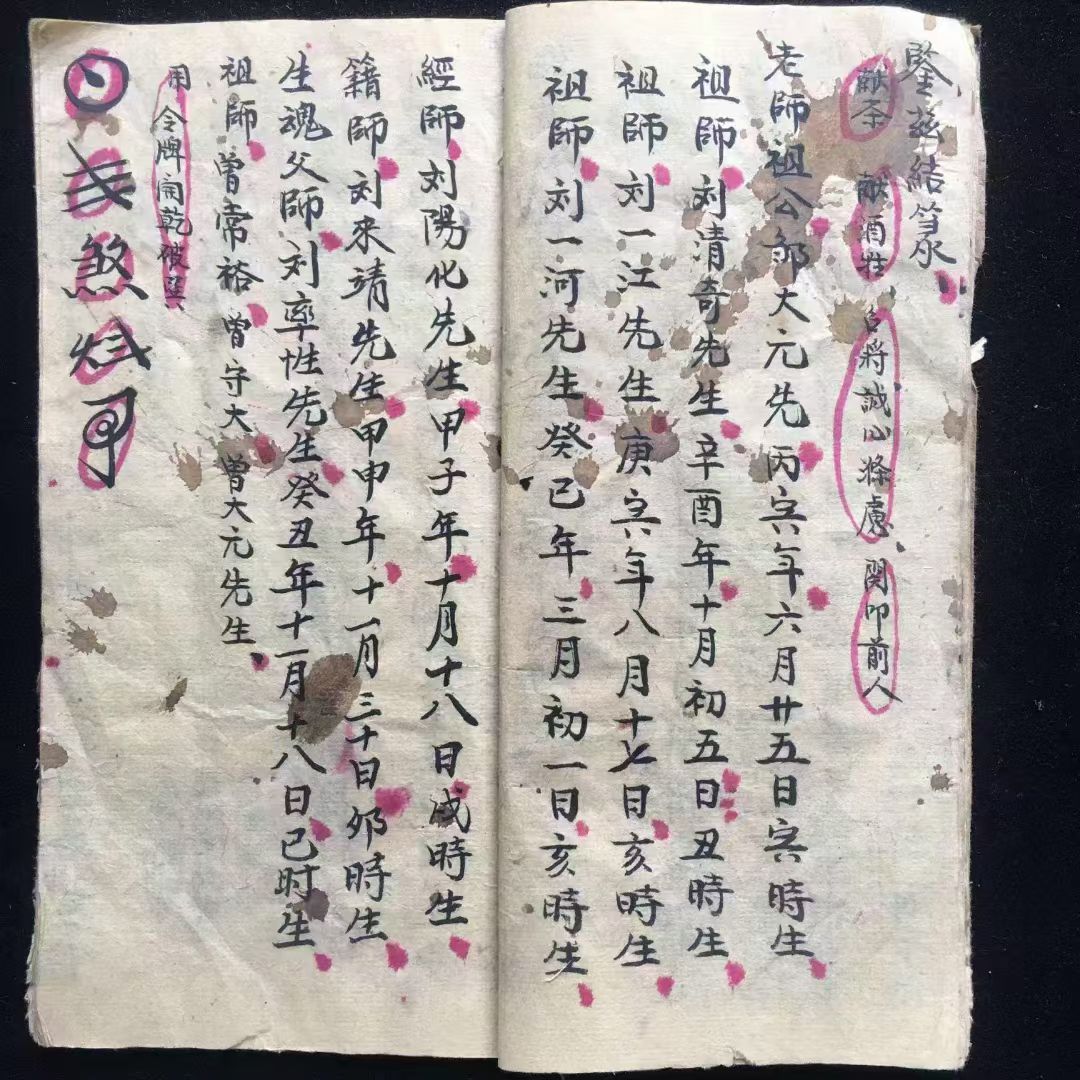 鑒茲結篆
献茶 献酒牲 召將誠心滌慮 関叩前人
老師祖公邹大元先丙寅年六月廿五日寅時生
祖師刘清奇先生辛酉年十月初五日丑時生
祖師刘一江先生庚寅年八月十七日亥時生
祖師刘一河先生癸巳年三月初一日亥時生
經師刘陽化先生甲子年十月十八日戌時生
籍師刘来靖先生甲申年十一月三十日夘時生
生魂父師刘率性先生癸丑年十一月十八日巳时生
祖師曾常裕曾守大曾大元先生
用令牌開乾破巽
煞